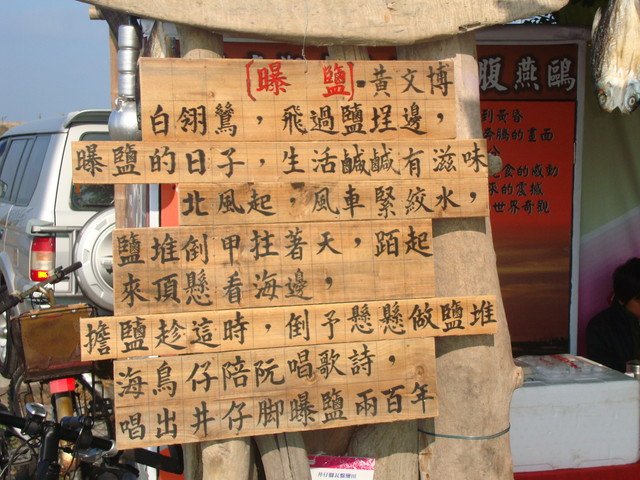 〔曝 鹽〕黃文博
白翎鷥,飛過鹽埕邊,
曝鹽的日子,生活鹹鹹有滋味
北風起,風車緊絞水,
鹽堆倒甲拄著天,跖起
來頂懸看海邊,
擔鹽趁這時,倒予懸懸做鹽堆
海鳥仔陪阮唱歌詩,
唱出井仔腳曝鹽兩百年
腹燕鷗
到黃昏
奔騰的畫面
的感動
來的震撼
世界奇觀
井仔腳瓦盤鹽田